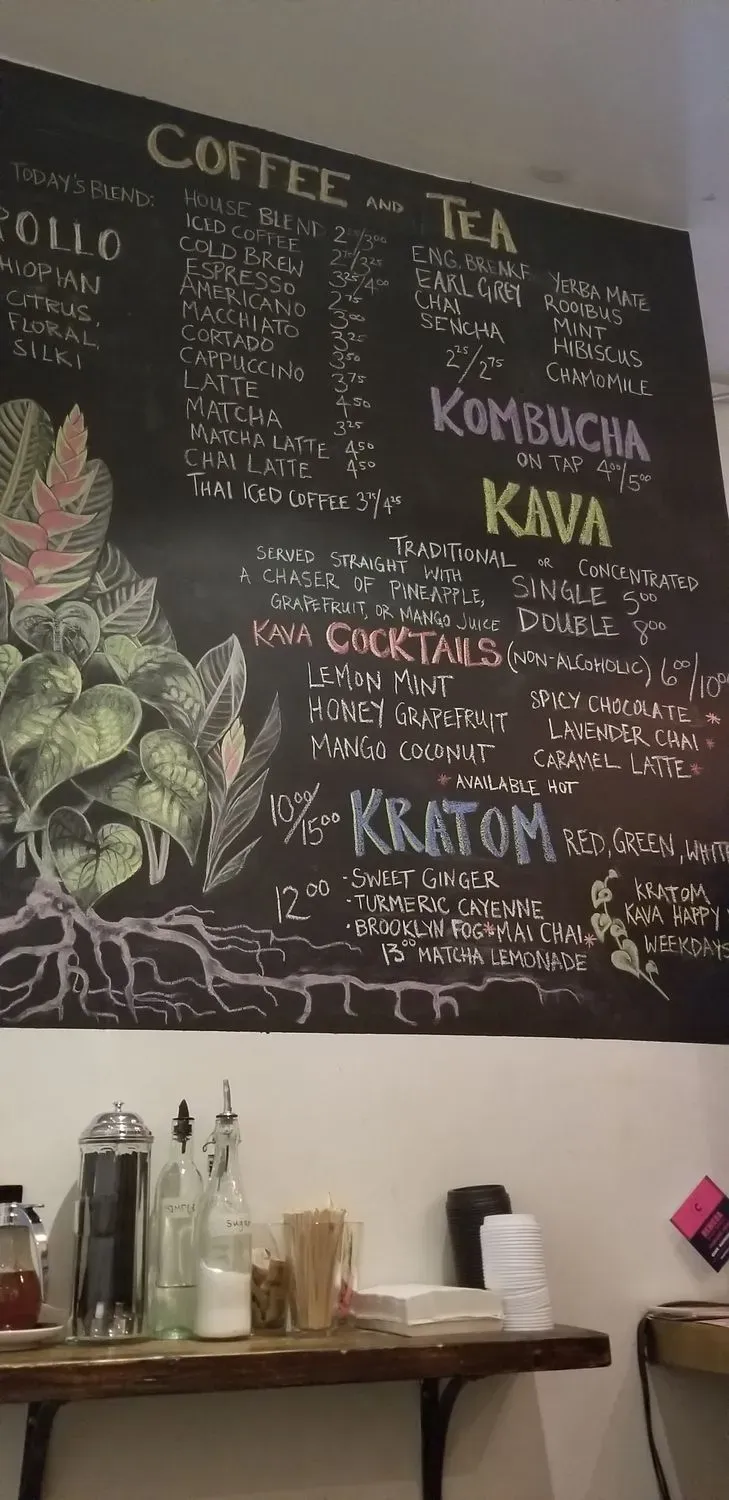 COFFEE AND TEA
TODAY'S BLEND:
POLLO
HIOPIAN
CITRUS,
FLORAL,
SILKI
HOUSE BLEND 2²⁵/3⁰⁰
ICED COFFEE 2⁷⁵/3²⁵
COLD BREW 3²⁵/4⁰⁰
ESPRESSO 2⁷⁵
AMERICANO 3⁰⁰
MACCHIATO 3²⁵
CORTADO 3⁵⁰
CAPPUCCINO 3⁷⁵
LATTE 4⁵⁰
MATCHA 3²⁵
MATCHA LATTE 4⁵⁰
CHAI LATTE 4⁵⁰
THAI ICED COFFEE 3⁷⁵/4²⁵
ENG. BREAKF
EARL GREY
CHAI
SENCHA
2²⁵/2⁷⁵
YERBA MATE
ROOIBUS
MINT
HIBISCUS
CHAMOMILE
KOMBUCHA
ON TAP 4⁰⁰/5⁰⁰
KAVA
TRADITIONAL OR CONCENTRATED
SERVED STRAIGHT WITH
A CHASER OF PINEAPPLE,
GRAPEFRUIT, OR MANGO JUICE
SINGLE 5⁰⁰
DOUBLE 8⁰⁰
KAVA COCKTAILS (NON-ALCOHOLIC) 6⁰⁰/10⁰⁰
LEMON MINT
HONEY GRAPEFRUIT
MANGO COCONUT
SPICY CHOCOLATE *
LAVENDER CHAI *
CARAMEL LATTE *
* AVAILABLE HOT
10⁰⁰/15⁰⁰ KRATOM RED, GREEN, WHIT
12⁰⁰
· SWEET GINGER
· TURMERIC CAYENNE
· BROOKLYN FOG * MAI CHAI *
13⁰⁰ MATCHA LEMONADE
KRATOM
KAVA HAPPY
WEEKDAYS
SUGAR